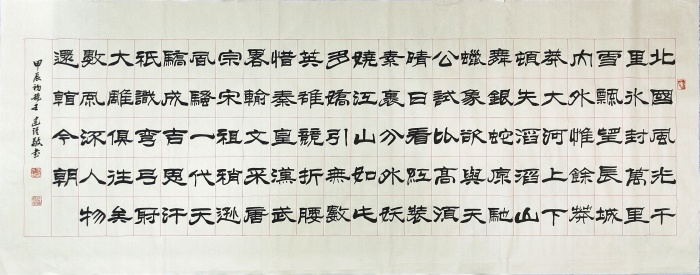 北國風光千
里冰封萬里
雪飄望長城
內外惟餘莽
莽大河上下
頓失滔滔山
舞銀蛇原馳
蠟象欲與天
公試比高須
晴日看紅裝
素裹分外妖
嬈江山如此
多嬌引無數
英雄競折腰
惜秦皇漢武
畧輸文采唐
宗宋祖稍遜
風騷一代天
驕成吉思汗
祇識彎弓射
大雕俱往矣
數風流人物
還看今朝
甲辰初 敬書